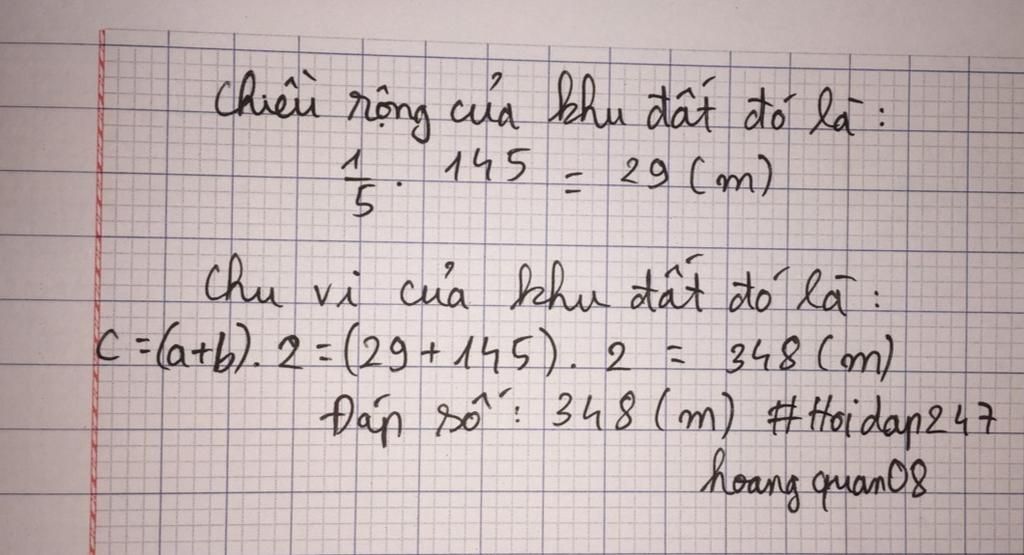 Chiều rộng của khu đất đó là:
1/5 . 145 = 29 (m)
Chu vi của khu đất đó là:
C = (a+b) . 2 = (29 + 145) . 2 = 348 (m)
Đáp số: 348 (m) #Hoidap247
hoangquan08